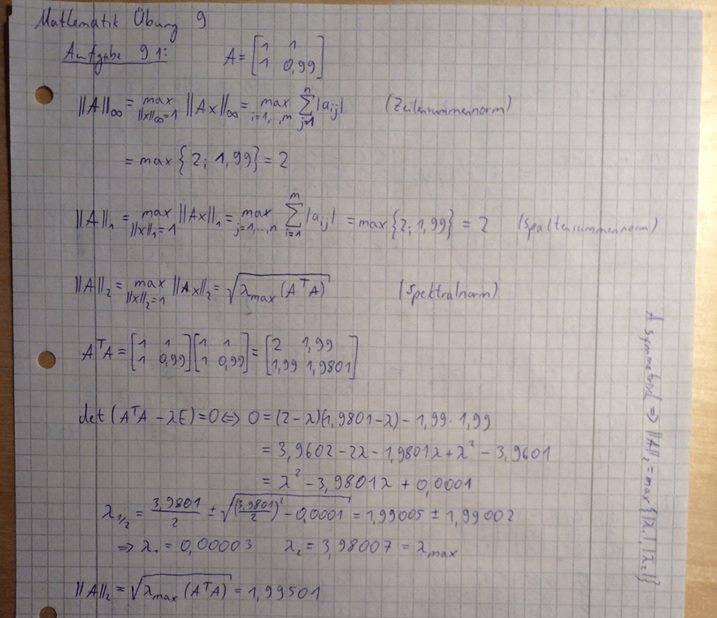 Mathematik Übung 9
Aufgabe 9 1: A = [1 1; 1 0,99]
||A||∞ = max_{||x||∞=1} ||Ax||∞ = max_{i=1,...,m} Σ_{j=1}^{n} |a_ij| (Zeilensummennorm)
= max{2; 1,99} = 2
||A||₁ = max_{||x||₁=1} ||Ax||₁ = max_{j=1,...,n} Σ_{i=1}^{m} |a_ij| = max{2; 1,99} = 2 (Spaltensummennorm)
||A||₂ = max_{||x||₂=1} ||Ax||₂ = √(λ_max (AᵀA)) (Spektralnorm)
AᵀA = [1 1; 1 0,99] [1 1; 1 0,99] = [2 1,99; 1,99 1,9801]
det (AᵀA - λE) = 0 ⇔ 0 = (2-λ)(1,9801-λ) - 1,99 · 1,99
= 3,9602 - 2λ - 1,9801λ + λ² - 3,9601
= λ² - 3,9801λ + 0,0001
λ_{1/2} = 3,9801/2 ± √((3,9801/2)² - 0,0001) = 1,99005 ± 1,99002
⇒ λ₁ = 0,00003 λ₂ = 3,98007 = λ_max
||A||₂ = √(λ_max (AᵀA)) = 1,99501
A symmetrisch ⇒ ||A||₂ = max{|λ₁|, |λ₂|}